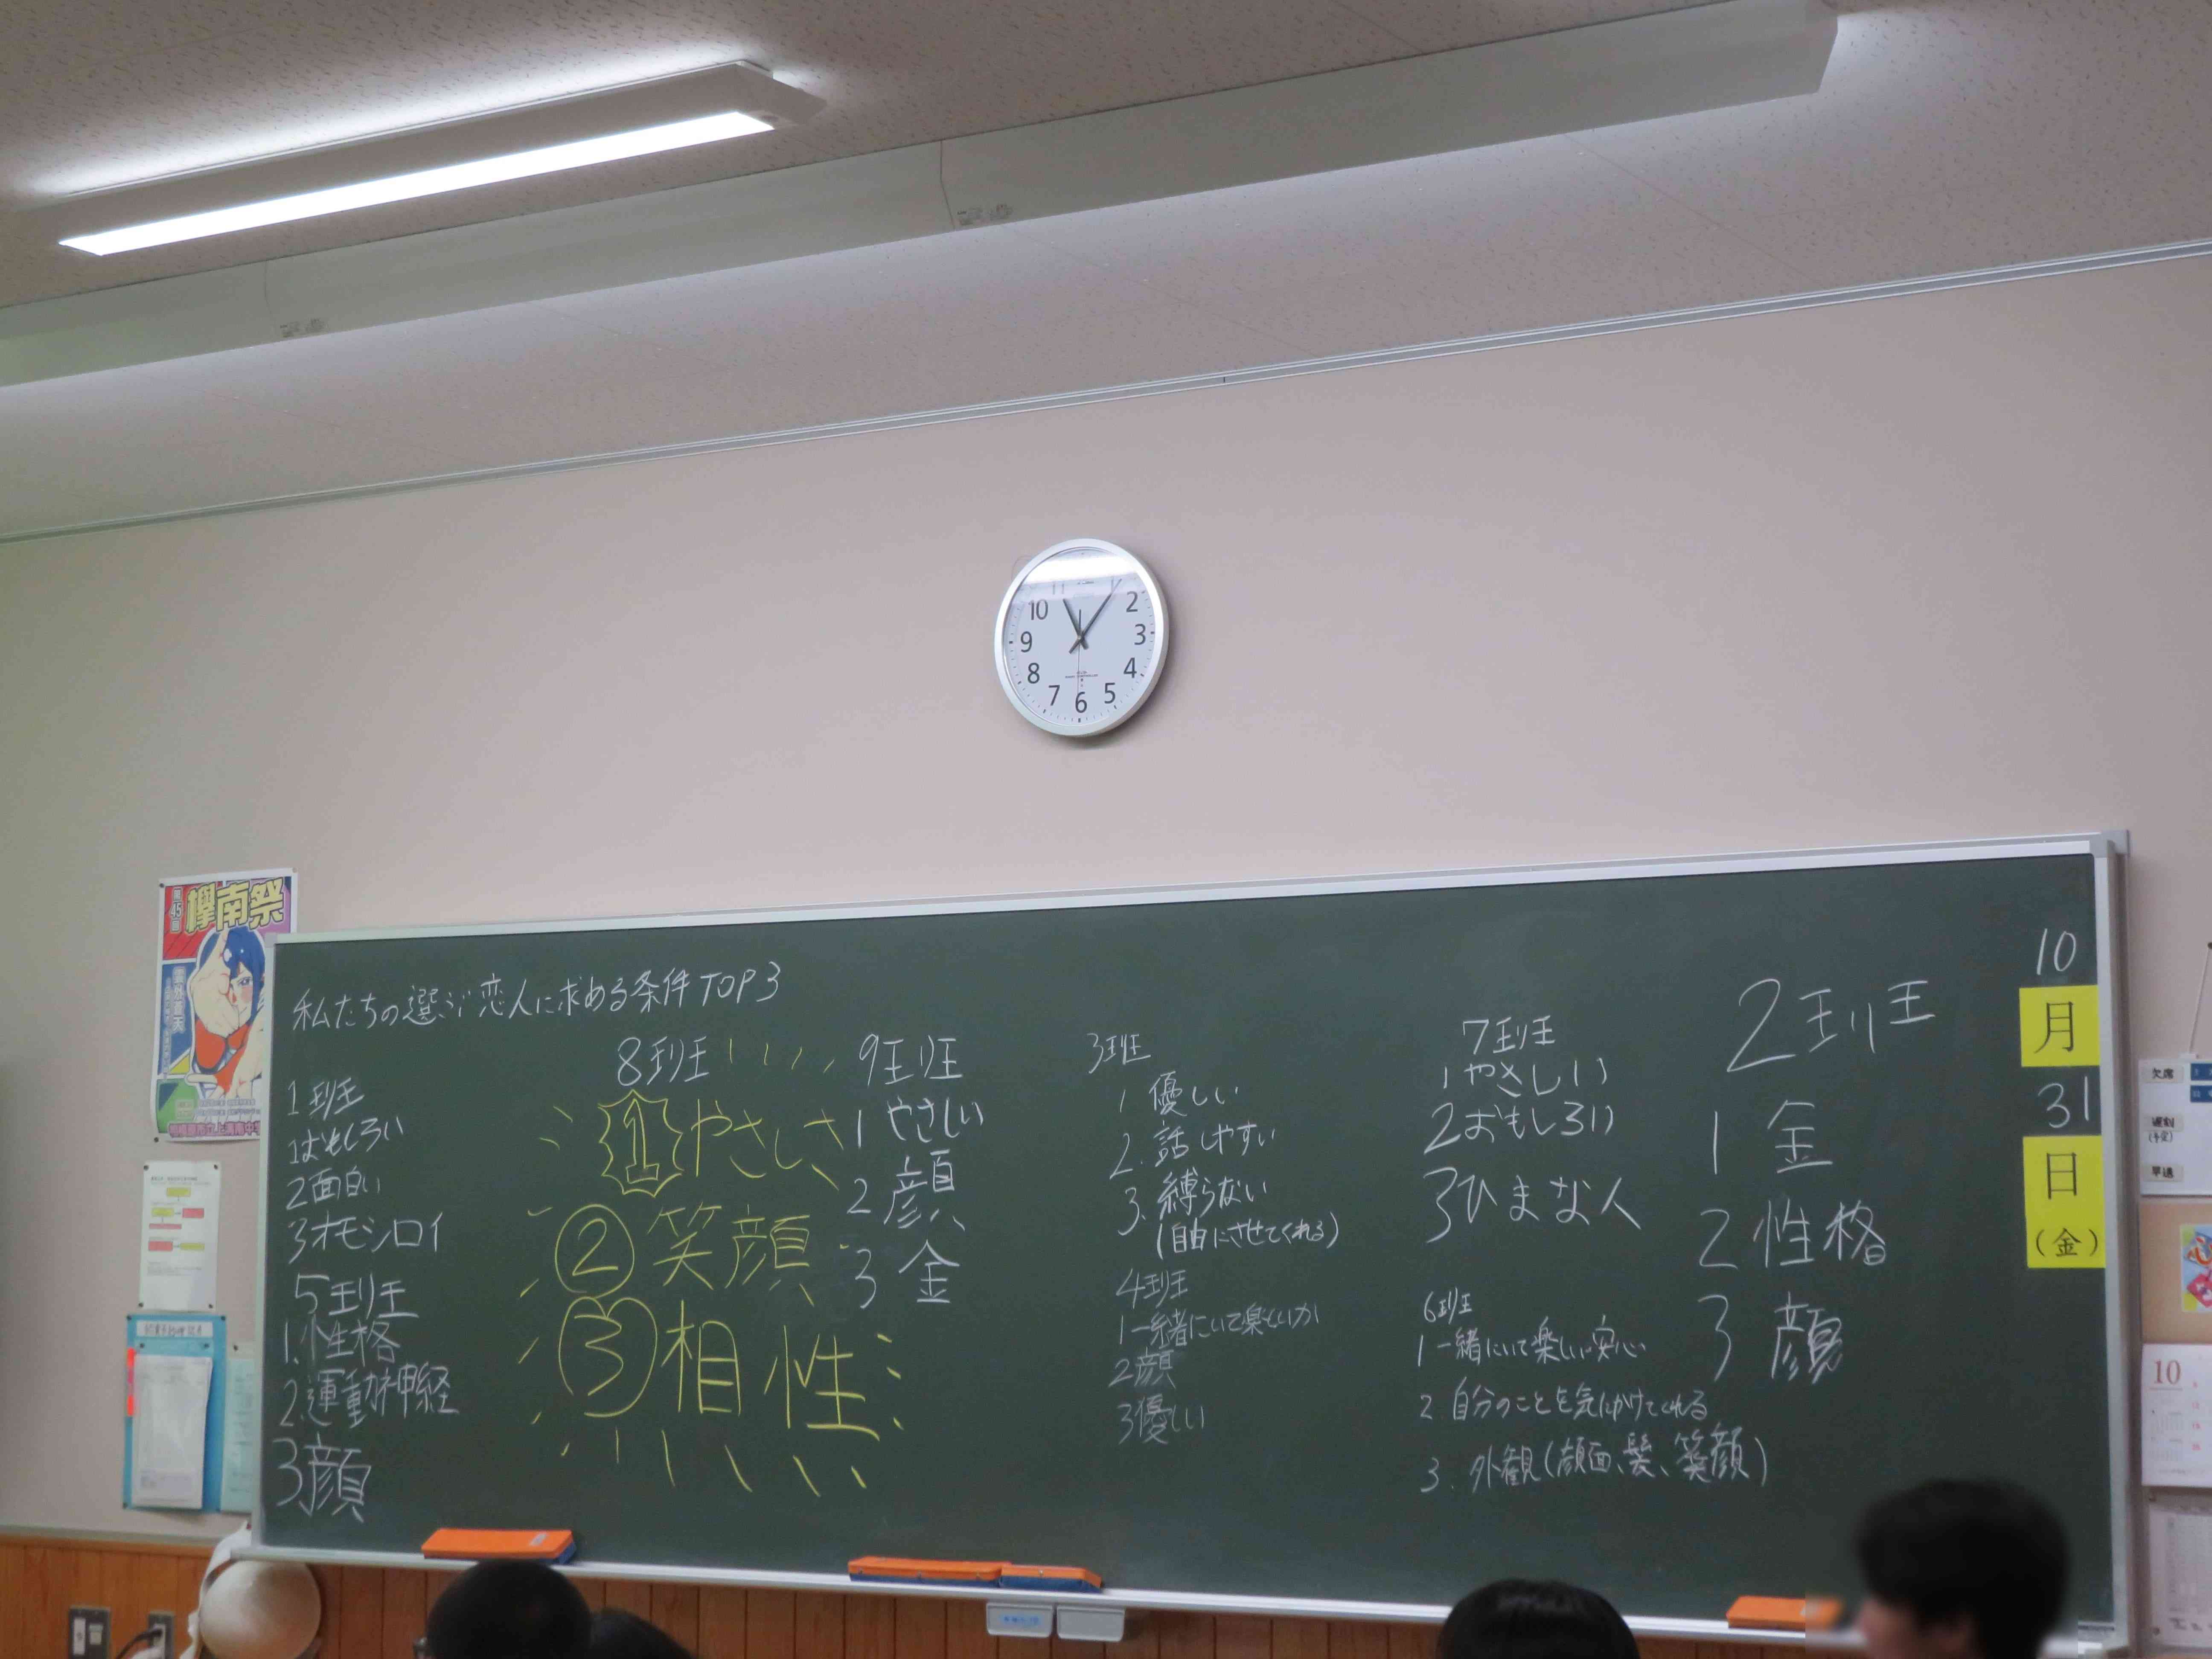 私たちの選ぶ恋人に求める条件TOP3
1班
1おもしろい
2面白い
3オモシロイ
5班
1.性格
2.運動神経
3.顔
8班
①やさしさ
②笑顔
③相性
9班
1やさしい
2顔
3金
3班
1 優しい
2.話しやすい
3.縛らない
(自由にさせてくれる)
4班
1一緒にいて楽しいか
2顔
3優しい
7班
1やさしい
2おもしろい
3ひまな人
6班
1一緒にいて楽しい安心
2.自分のことを気にかけてくれる
3.外観(顔面、髪、笑顔)
2班
1金
2性格
3顔
10
月
31
日
(金)
第45回
欅南祭
10
2
9
3
8
4
7
6
5
欠席
遅刻
(予定)
早退
10